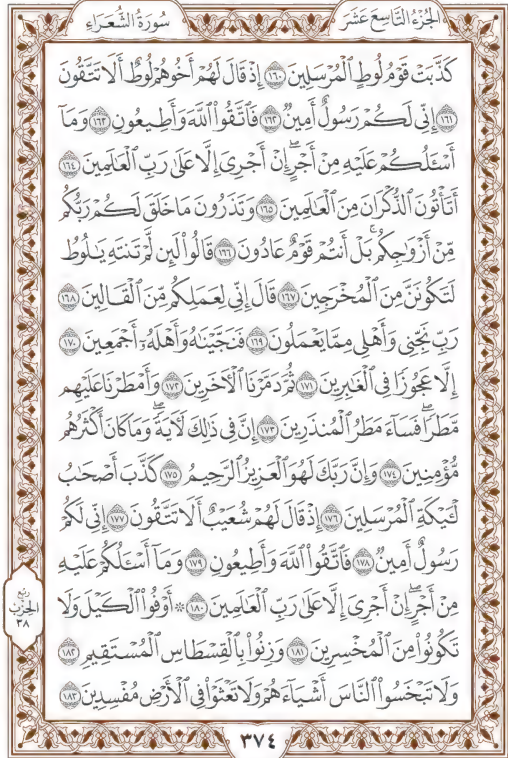 الجزء التاسع عشر سورة الشعراء
كَذَّبَتْ قَوْمُ لُوطٍ ٱلْمُرْسَلِينَ ١٦٠ إِذْ قَالَ لَهُمْ أَخُوهُمْ لُوطٌ أَلَا تَتَّقُونَ
١٦١ إِنِّي لَكُمْ رَسُولٌ أَمِينٌ ١٦٢ فَٱتَّقُوا۟ ٱللَّهَ وَأَطِيعُونِ ١٦٣ وَمَآ
أَسْـَٔلُكُمْ عَلَيْهِ مِنْ أَجْرٍ ۖ إِنْ أَجْرِىَ إِلَّا عَلَىٰ رَبِّ ٱلْعَـٰلَمِينَ ١٦٤
أَتَأْتُونَ ٱلذُّكْرَانَ مِنَ ٱلْعَـٰلَمِينَ ١٦٥ وَتَذَرُونَ مَا خَلَقَ لَكُمْ رَبُّكُم
مِّنْ أَزْوَٰجِكُم ۚ بَلْ أَنتُمْ قَوْمٌ عَادُونَ ١٦٦ قَالُوا۟ لَئِن لَّمْ تَنتَهِ يَـٰلُوطُ
لَتَكُونَنَّ مِنَ ٱلْمُخْرَجِينَ ١٦٧ قَالَ إِنِّى لِعَمَلِكُم مِّنَ ٱلْقَالِينَ ١٦٨
رَبِّ نَجِّنِى وَأَهْلِى مِمَّا يَعْمَلُونَ ١٦٩ فَنَجَّيْنَـٰهُ وَأَهْلَهُۥٓ أَجْمَعِينَ ١٧٠
إِلَّا عَجُوزًا فِى ٱلْغَـٰبِرِينَ ١٧١ ثُمَّ دَمَّرْنَا ٱلْـَٔاخَرِينَ ١٧٢ وَأَمْطَرْنَا عَلَيْهِم
مَّطَرًا ۖ فَسَآءَ مَطَرُ ٱلْمُنذَرِينَ ١٧٣ إِنَّ فِى ذَٰلِكَ لَـَٔايَةً ۖ وَمَا كَانَ أَكْثَرُهُم
مُّؤْمِنِينَ ١٧٤ وَإِنَّ رَبَّكَ لَهُوَ ٱلْعَزِيزُ ٱلرَّحِيمُ ١٧٥ كَذَّبَ أَصْحَـٰبُ
لْـَٔيْكَةِ ٱلْمُرْسَلِينَ ١٧٦ إِذْ قَالَ لَهُمْ شُعَيْبٌ أَلَا تَتَّقُونَ ١٧٧ إِنِّى لَكُمْ
رَسُولٌ أَمِينٌ ١٧٨ فَٱتَّقُوا۟ ٱللَّهَ وَأَطِيعُونِ ١٧٩ وَمَآ أَسْـَٔلُكُمْ عَلَيْهِ
مِنْ أَجْرٍ ۖ إِنْ أَجْرِىَ إِلَّا عَلَىٰ رَبِّ ٱلْعَـٰلَمِينَ ١٨٠ ۞ أَوْفُوا۟ ٱلْكَيْلَ وَلَا
تَكُونُوا۟ مِنَ ٱلْمُخْسِرِينَ ١٨١ وَزِنُوا۟ بِٱلْقِسْطَاسِ ٱلْمُسْتَقِيمِ ١٨٢
وَلَا تَبْخَسُوا۟ ٱلنَّاسَ أَشْيَآءَهُمْ وَلَا تَعْثَوْا۟ فِى ٱلْأَرْضِ مُفْسِدِينَ ١٨٣
ربع
الحزب
٣٨
٣٧٤